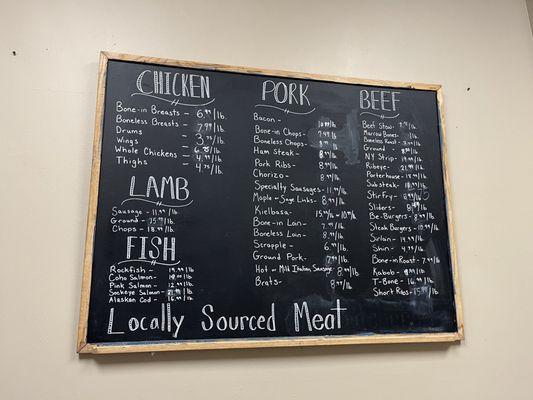 CHICKEN
Bone-in Breasts - 6.99/lb.
Boneless Breasts - 7.99/lb.
Drums -
Wings -
Whole Chickens -
Thighs -
LAMB
Sausage - 11.99/lb.
Ground -
Chops - 18.99/lb.
FISH
Rockfish - 19.99/lb.
Coho Salmon -
Pink Salmon - 12.99/lb.
Sockeye Salmon -
Alaskan Cod - 16.99/lb.
PORK
Bacon - 10.99/lb.
Bone-in Chops - 7.49/lb.
Boneless Chops -
Ham Steak - 8.99/lb.
Pork Ribs - 8.99/lb.
Chorizo - 8.99/lb.
Specialty Sausages - 11.99/lb.
Maple + Sage Links - 8.99/lb.
Kielbasa
Bone-in Loin - 7.99/lb.
Boneless Loin - 8.99/lb.
Scrapple - 6.99/lb.
Ground Pork - 7.99/lb.
Hot or Mild Italian Sausage - 8.99/lb.
Brats - 8.99/lb.
BEEF
Beef Stew -
Marrow Bones -
Boneless Roast -
Ground -
NY Strip - 19.99/lb.
Ribeye - 21.99/lb.
Porterhouse - 18.99/lb.
Cubsteak -
Stir Fry -
Sliders -
Be-Burgers -
Steak Burgers - 10.99/lb.
Sirloin - 14.99/lb.
Shin -
Bone-in Roast - 7.99/lb.
Kabob -
T-Bone - 16.99/lb.
Short Ribs -
Locally Sourced Meat